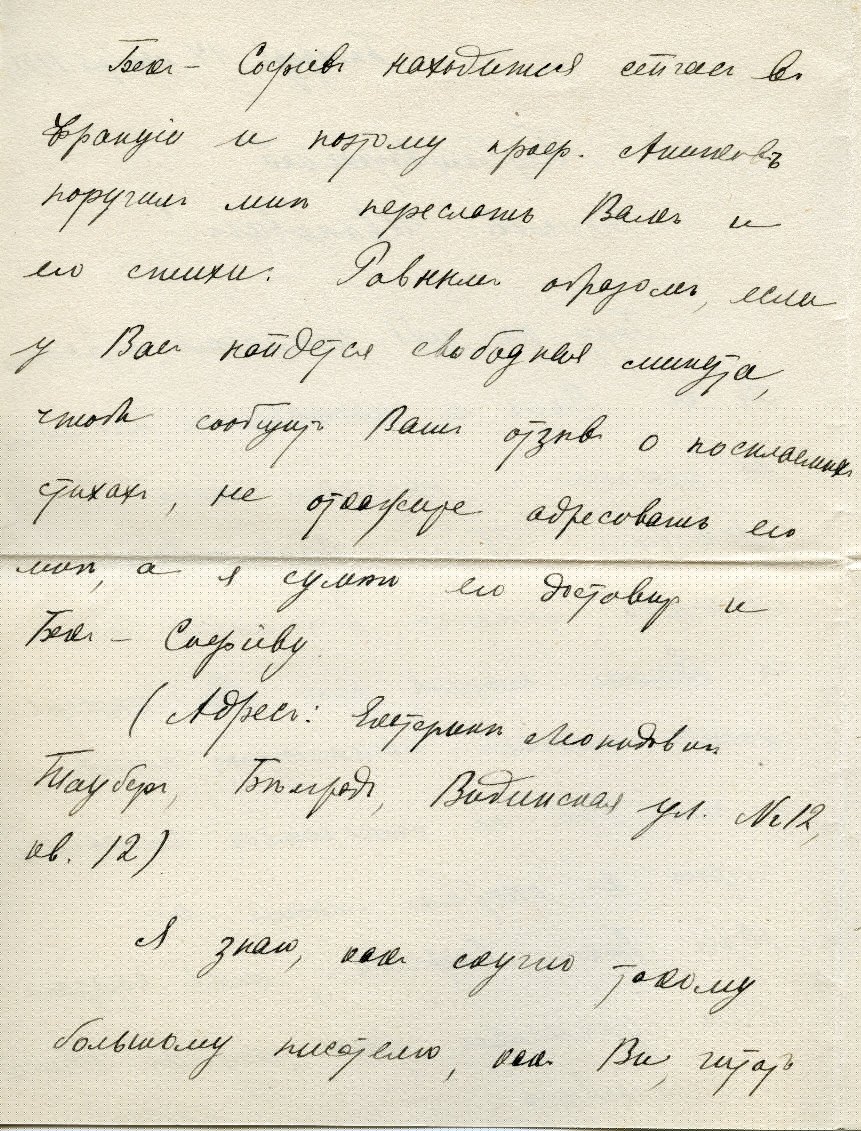 Бекъ-Софіевъ находится сейчасъ въ
Франціи и поэтому проф. Аничковъ
поручилъ мнѣ переслать Вамъ и
его стихи. Равнымъ образомъ, если
у Васъ найдется свободная минута,
чтобы сообщить Вашъ отзывъ о посылаемыхъ
стихахъ, не откажите адресовать его
мнѣ, а я сумѣю его доставить и
Бекъ-Софіеву.
(Адресъ: Екатеринѣ Леонидовнѣ
Тауберъ, Бѣлградъ, Водинская ул. № 12,
кв. 12)
Я знаю, какъ скучно такому
большому писателю, какъ Вы, читать